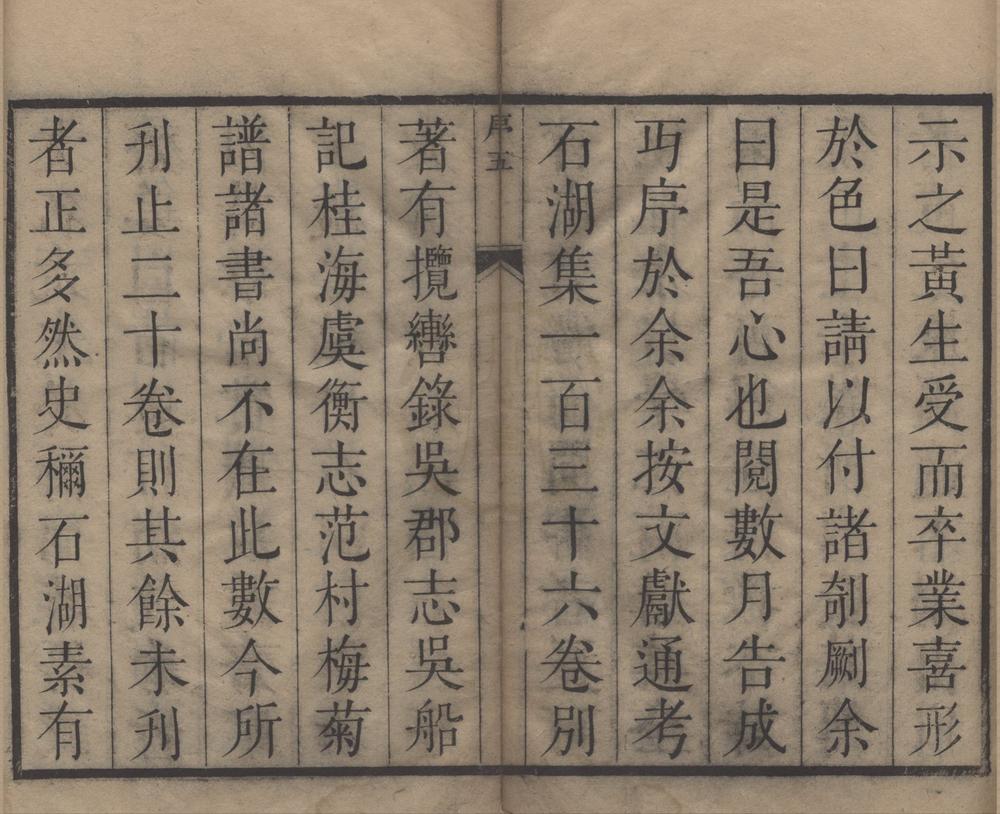 示之黃生受而卒業喜形
於色曰請以付諸剞劂余
曰是吾心也閱數月告成
丏序於余余按文獻通考
石湖集一百三十六卷別
序五
著有攬轡錄吳郡志吳船
記桂海虞衡志范村梅菊
譜諸書尚不在此數今所
刋止二十卷則其餘未刋
者正多然史稱石湖素有